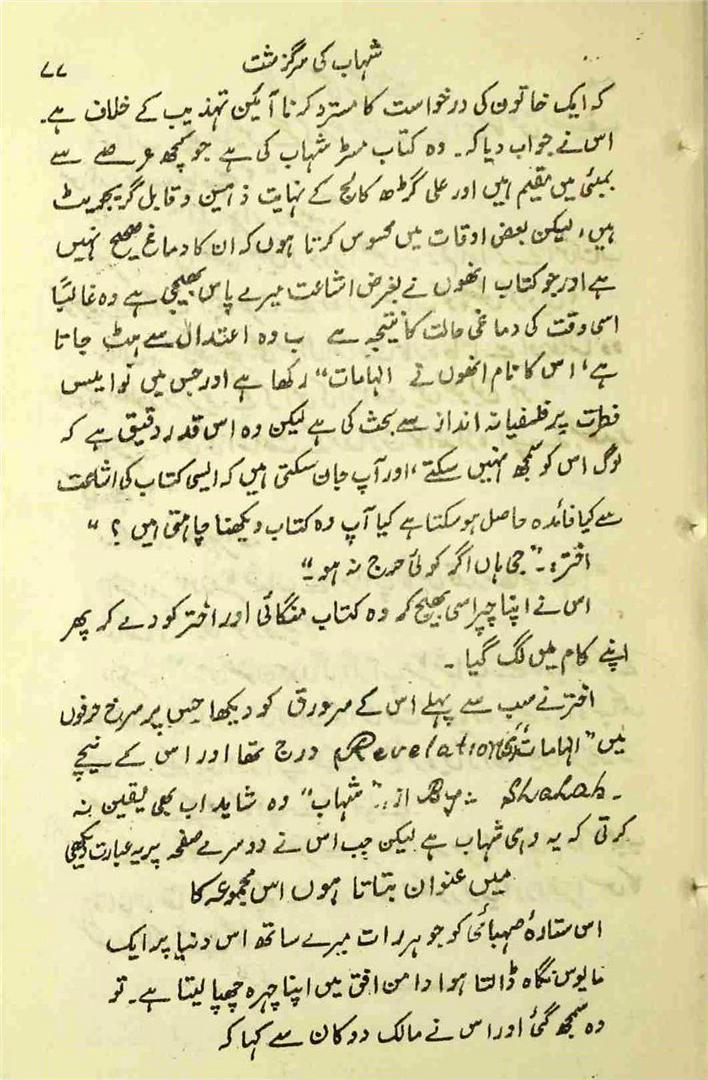 شہاب کی سرگزشت ۷۷
کہ ایک خاتون کی درخواست کا مسترد کرنا آئین تہذیب کے خلاف ہے۔
اس نے جواب دیا کہ۔ وہ کتاب مسٹر شہاب کی ہے جو کچھ عرصے سے
بمبئی میں مقیم ہیں اور علی گڑھ کالج کے نہایت ذہین و قابل گریجویٹ
ہیں، لیکن بعض اوقات میں محسوس کرتا ہوں کہ ان کا دماغ صحیح نہیں
ہے اور جو کتاب انھوں نے بغرض اشاعت میرے پاس بھیجی ہے وہ غالباً
اسی وقت کی دماغی حالت کا نتیجہ ہے ب وہ اعتدال سے ہٹ جاتا
ہے، اس کا نام انھوں نے الہامات" رکھا ہے اور جس میں نوامیس
فطرت پر فلسفیانہ انداز سے بحث کی ہے لیکن وہ اس قدر دقیق ہے کہ
لوگ اس کو سمجھ نہیں سکتے، اور آپ جان سکتی ہیں کہ ایسی کتاب کی اشاعت
سے کیا فائدہ حاصل ہو سکتا ہے کیا آپ وہ کتاب دیکھنا چاہتی ہیں ؟ "
اختر:۔ "جی ہاں اگر کوئی حرج نہ ہو۔"
اس نے اپنا چپراسی بھیج کر وہ کتاب منگائی اور اختر کو دے کر پھر
اپنے کام میں لگ گیا۔
اختر نے سب سے پہلے اس کے سرورق کو دیکھا جس پر سرخ حرفوں
میں "الہامات Revelation درج تھا اور اس کے نیچے
۔ By :- Shahab از:۔ "شہاب" وہ شاید اب بھی یقین نہ
کرتی کہ یہ وہی شہاب ہے لیکن جب اس نے دوسرے صفحہ پر یہ عبارت دیکھی
میں عنوان بتاتا ہوں اس مجموعہ کا
اس ستارۂ صہبائی کو جو ہر رات میرے ساتھ اس دنیا پر ایک
مایوس نگاہ ڈالتا ہوا دامن افق میں اپنا چہرہ چھپا لیتا ہے۔ تو
وہ سمجھ گئی اور اس نے مالک دوکان سے کہا کہ